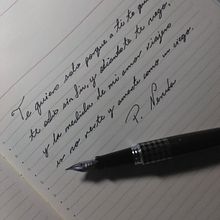 Te quiero solo porque a ti te quiero,
te odio sin fin, y odiándote te ruego,
y la medida de mi amor viajero
es no verte y amarte como un ciego.
P. Neruda